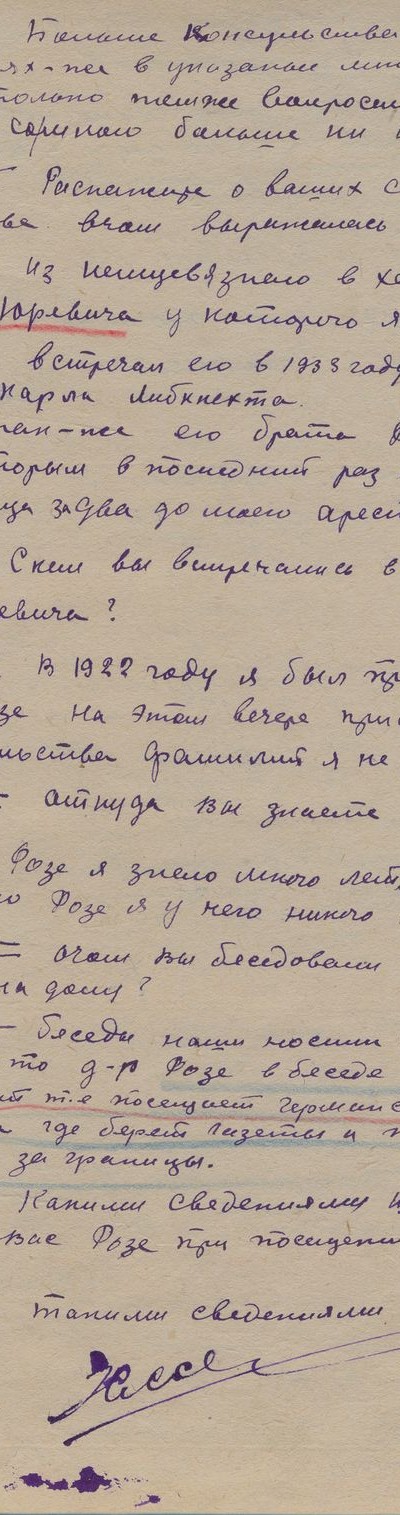 Больше Консульства
ях-же в указаные
только теже вопросы
больше ни
Раскажите о ваших с
ве вчом выражалась
Из немцев я знаю в хе
Юревича у которого я
встречал его в 1933 году
Карла Либкнехта.
так-же его брата
торым в последний раз
ца за два до моего арест
С кем вы встречались в
евича?
В 1922 году я был пр
зе на этом вечере при
льства фамилий я не
откуда вы знаете
Розе я знаю много лет,
Розе я у него никого
= о чом вы беседовали
на дому?
Беседы наши носили
то д-р Розе в беседе
т.е посещает Германс
где берет газеты и
за границы.
Какими сведениями
вас Розе при посещени
такими сведениями